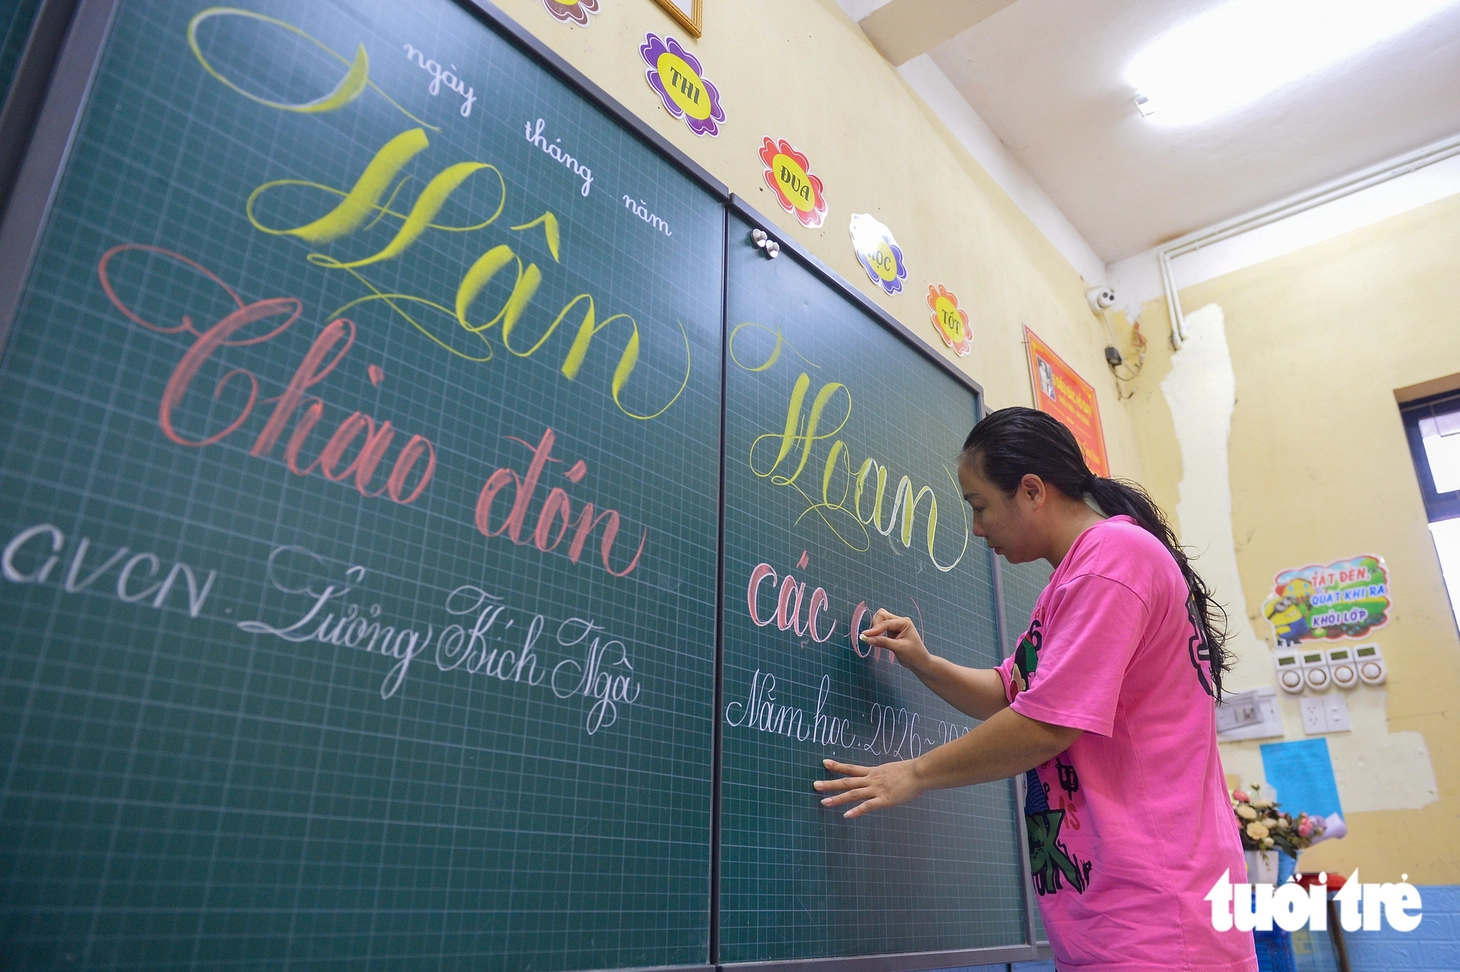 THI ĐUA HỌC TỐT
ngày tháng năm
Hân Hoan
Chào đón các
GVCN: Lưỡng Bích Ngà
Năm học: 2026 ~
TẮT ĐÈN,
QUẠT KHI RA
KHỎI LỚP
tuổi trẻ